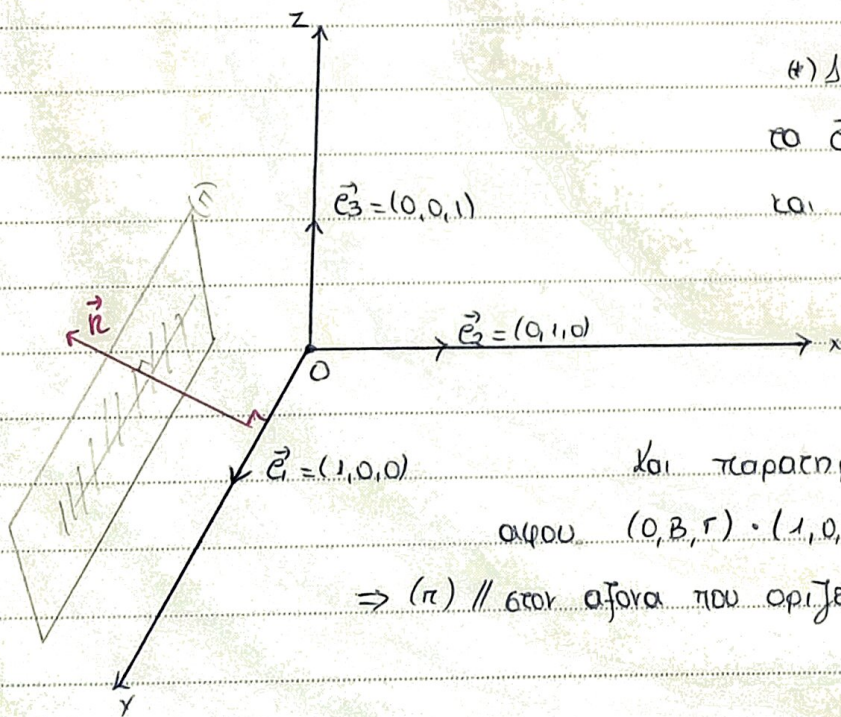 z
(*) Δ
το e⃗
e⃗3 = (0,0,1)
και
(π)
n⃗
e⃗2 = (0,1,0)
x
O
e⃗1 = (1,0,0)
Και παρατηρ
αφου (0,Β,Γ) · (1,0,
⇒ (π) // στον αξονα που οριζε
Y